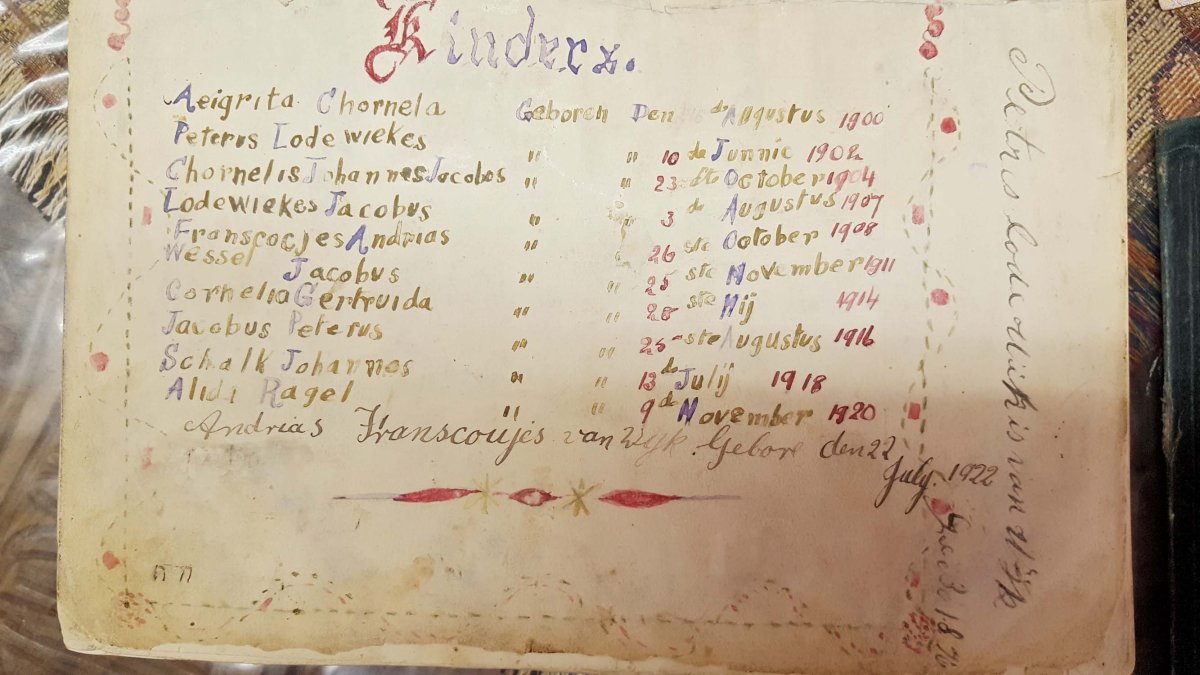 Kinders.
Aeigrita Chornela Geboren Den de Augustus 1900
Peterus Lodewiekes " " 10 de Junnie 1902
Chornelis Johannes Jacobos " " 23 ste October 1904
Lodewiekes Jacobus " " 3 de Augustus 1907
Franscocjes Andrias " " 26 ste October 1908
Wessel Jacobus " " 25 ste November 1911
Cornelia Gertruida " " 28 ste Mij 1914
Jacobus Peterus " " 25 ste Augustus 1916
Schalk Johannes " " 13 de Julij 1918
Alida Ragel " " 9 de November 1920
Andrias Franscoujes van Wyk. Gebore den 22
July. 1922
Petris lodewikis van Wÿk